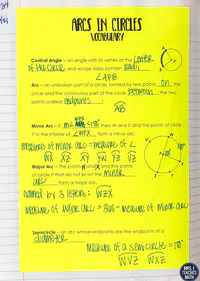 ARCS IN CIRCLES
VOCABULARY
Central Angle - an angle with its vertex at the center
of the circle, and whose sides contain radii
∠APB
Arc - an unbroken part of a circle, formed by two points on the
circle and the continuous part of the circle between the two
points called endpoints.
AB
Minor Arc - If m∠WPX < 180°, then W and X and the points of circle
P in the interior of ∠WPX form a minor arc.
measure of minor arc = measure of ∠
WX XZ XY YW YZ VZ
Major Arc - The points W and X and the points of
circle P that do not lie on the minor
arc form a major arc.
named by 3 letters: WZX
measure of major arc = 360 - measure of minor arc
Semicircle - an arc whose endpoints are the endpoints of a
diameter.
measure of a semicircle = 180°
WVZ WXZ
MRS. E
TEACHES
MATH